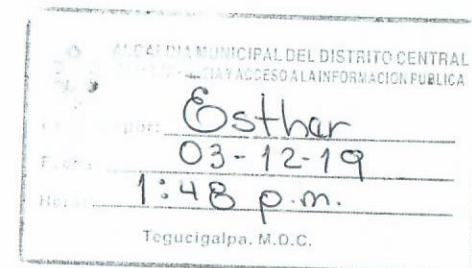 ALCALDIA MUNICIPAL DEL DISTRITO CENTRAL
Y ACCESO A LA INFORMACION PUBLICA
por: Esthar
03-12-19
1:48 p.m.
Tegucigalpa. M.D.C.